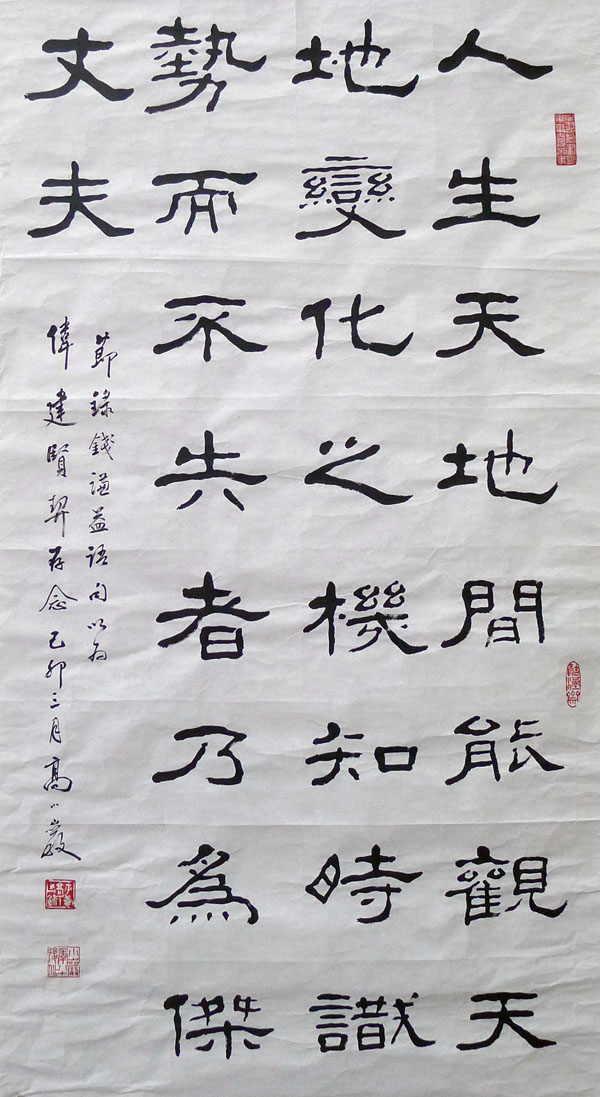 人生天地間能觀天
地變化之機知時識
勢而不失者乃為傑
丈夫
節錄錢謙益語句以為
偉建賢契存念己卯三月高小巖